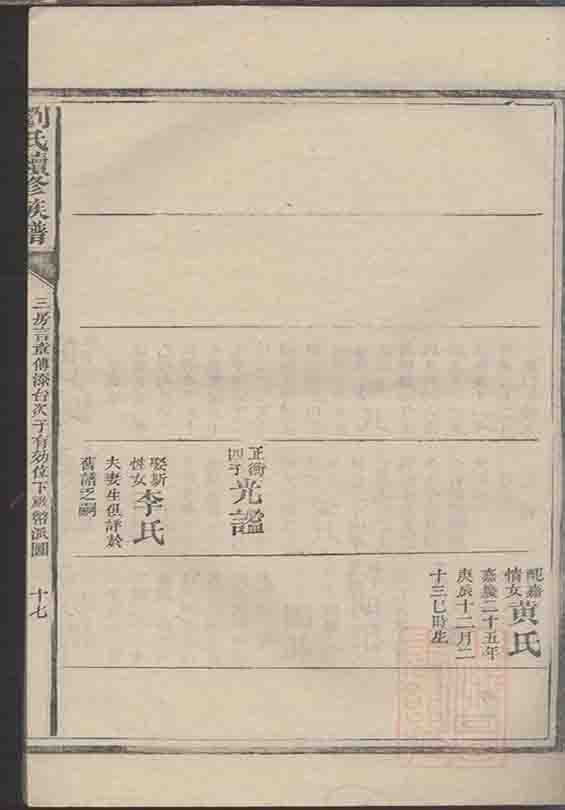 配嘉
情女
黄氏
嘉慶二十五年
庚辰十二月二
十三巳時生
正衡
四子
光謐
娶新
性女
李氏
夫妻生俱詳於
舊譜乏嗣
劉氏續修族譜
三房言章傳添台次子有効位下
派圖
十七